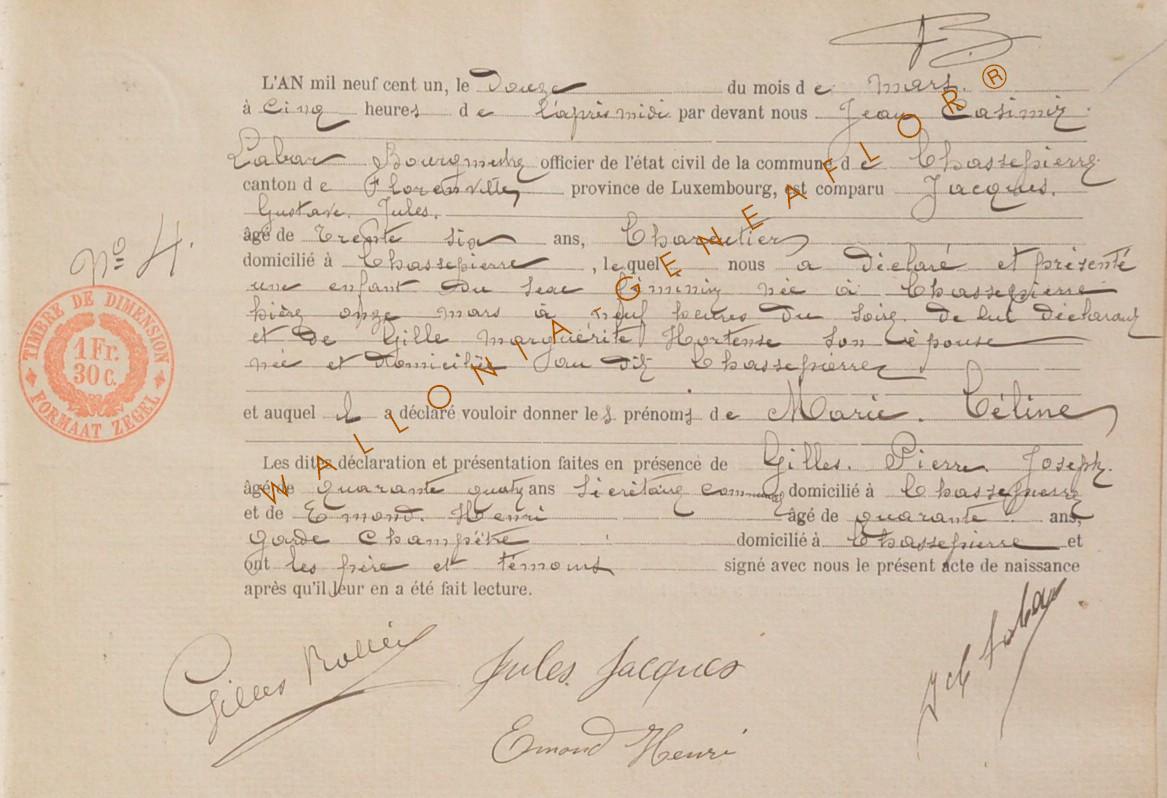 L'AN mil neuf cent un, le Douze du mois de mars.
à Cinq heures de l'après midi par devant nous Jean Casimir
Labar Bourgmestre officier de l'état civil de la commune de Chassepierre
canton de Florenville, province de Luxembourg, est comparu Jacques.
Gustave. Jules.
âgé de trente six ans, Charcutier
domicilié à Chassepierre, lequel nous a déclaré et présenté
N° 4.
une enfant du sexe féminin née à Chassepierre
hière onze mars à neuf heures du soir, de lui déclarant
et de Gille Marguérite Hortense son épouse
née et domiciliée au dit Chassepierre
et auquel il a déclaré vouloir donner les prénoms de Marie. Céline
Les dites déclaration et présentation faites en présence de Gilles. Pierre Joseph.
âgé de quarante quatre ans Sécrétaire communal domicilié à Chassepierre
et de Emond. Henri âgé de quarante ans,
garde Champêtre domicilié à Chassepierre et
ont les père et témoins signé avec nous le présent acte de naissance
après qu'il leur en a été fait lecture.
TIMBRE DE DIMENSION
1 Fr.
30 C.
FORMAAT ZEGEL
WALLONIA GENEAFLOR®
Gilles
Jules. Jacques
Emond Henri